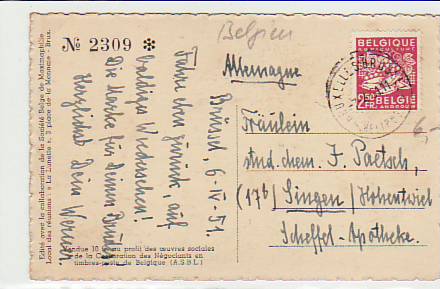 Belgien
№ 2309 ✻
Allemagne
BELGIQUE
AGRICULTURE
2 50 FR BELGIË
LANDBOUW
Edité avec la collaboration de la Société Belge de Maximaphilie
Local des réunions : « La Lunette », 3 place de la Monnaie - Brux.
Brüssel, 6-IV-51.
Fahre eben zurück, auf
baldiges Wiedersehen!
Die Marke für Deinen Bruder
Herzlichst Dein Werner.
Fräulein
stud. chem. F. Paetsch,
(17b) Singen / Hohentwiel
Scheffel-Apotheke.
6,-
Vendue 10 fr au profit des œuvres sociales
de la Corporation des Négociants en
timbres-poste de Belgique (A.S.B.L.)